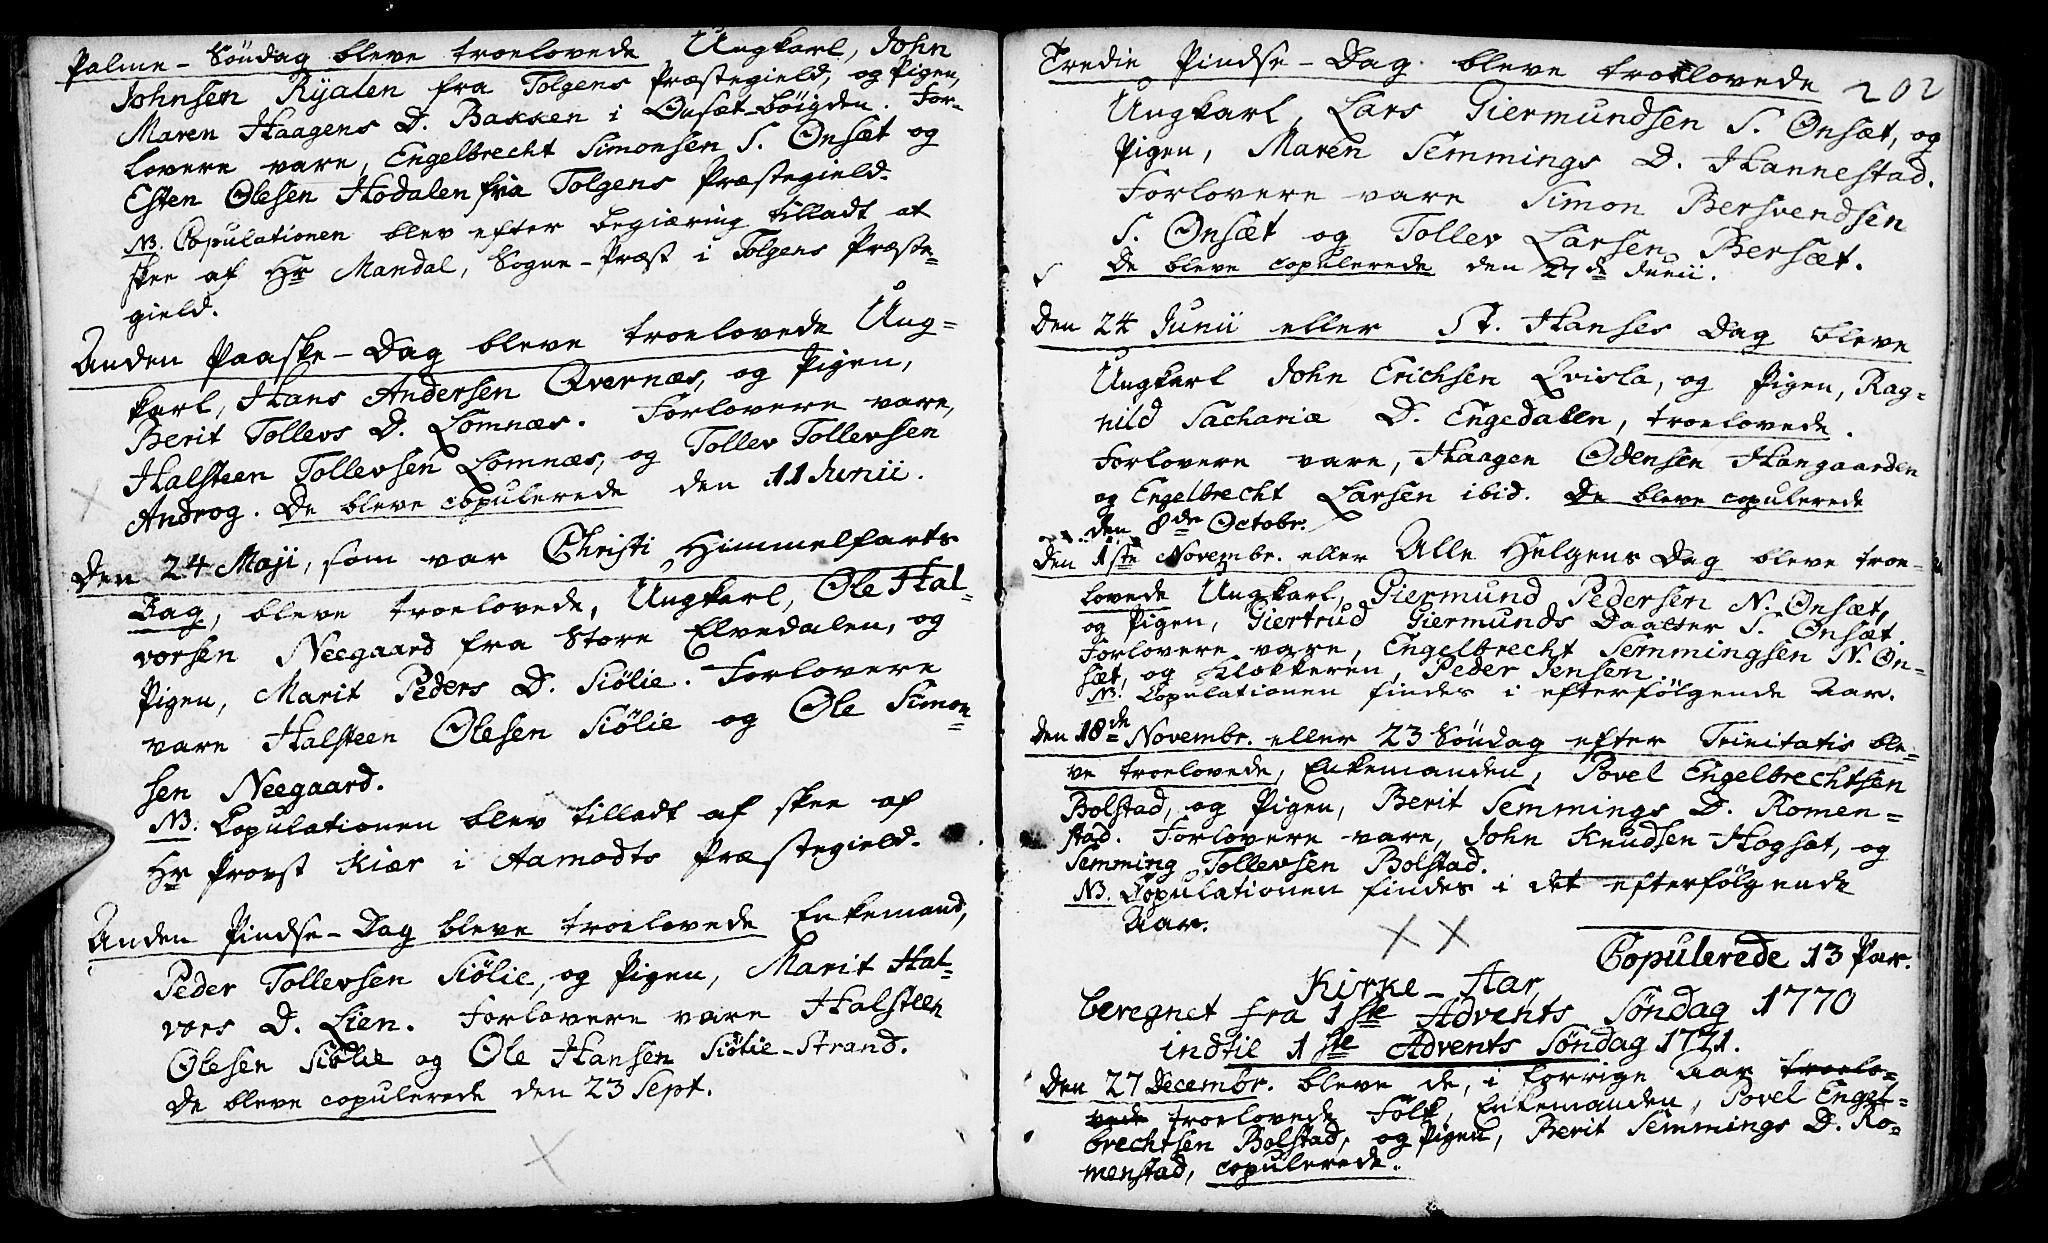 Palme-Søndag bleve troelovede Ungkarl, John
Johnsen Ryalen fra Tolgens Præstegield, og Pigen,
Maren Haagens D. Bakken i Ønsæt-Bøigden. For-
lovere vare, Engelbrecht Simonsen S. Ønsæt og
Esten Olesen Hodalen fra Tolgens Præstegield.
NB. Copulationen blev efter begiæring tilladt at
skee af Hr Mandal, Sogne-Præst i Tolgens Præste=
gield.
Anden Paaske-Dag bleve troelovede Ung=
karl, Hans Andersen Qvernæs, og Pigen,
Berit Tollevs D. Lomnæs. Forlovere vare,
Halsteen Tollevsen Lomnæs, og Tollev Tollevsen
Androg. De bleve copulerede den 11 Junii.
Den 24 Maji, som var Christi Himmelfarts
Dag, bleve troelovede, Ungkarl, Ole Hal=
vorsen Neegaard fra Store Elvedalen, og
Pigen, Marit Peders D. Siølie. Forlovere
vare Halsteen Olesen Siølie og Ole Simon=
sen Neegaard.
NB. Copulationen blev tilladt at skee af
Hr Provst Kiær i Aamodts Præstegield.
Anden Pindse-Dag bleve troelovede Enkemand,
Peder Tollevsen Siølie, og Pigen, Marit Hal=
vors D. Lien. Forlovere vare Halsteen
Olesen Siølie og Ole Hansen Siølie-Strand.
De bleve copulerede den 23 Sept.
Tredie Pindse-Dag bleve troelovede 202
Ungkarl, Lars Giermundsen S. Ønsæt, og
Pigen, Maren Semmings D. Hannestad.
Forlovere vare Simon Bersvendsen
S. Ønsæt og Tollev Larsen Bersæt.
De bleve copulerede den 27de Junii.
Den 24 Junii eller St. Hanses Dag bleve
Ungkarl John Erichsen Qvisla, og Pigen, Rag=
nild Sachariæ D. Engedalen, troelovede.
Forlovere vare, Haagen Odensen Haugaarden
og Engelbrecht Larsen ibid. De bleve copulerede
den 8de Octobr.
Den 1ste Novembr. eller Alle Helgens Dag bleve troe-
lovede Ungkarl, Giermund Pedersen N. Ønsæt,
og Pigen, Giertrud Giermunds Daatter S. Ønsæt.
Forlovere vare, Engelbrecht Semmingsen N. Øn-
sæt, og Klokkeren, Peder Jensen.
NB. Copulationen findes i efterfølgende Aar.
Den 18de Novembr. eller 23 Søndag efter Trinitatis ble-
ve troelovede, Enkemanden, Povel Engelbrechtsen
Bolstad, og Pigen, Berit Semmings D. Romen=
stad. Forlovere vare, John Knudsen Hogsæt, og
Semming Tollevsen Bolstad.
NB. Copulationen findes i det efterfølgende
Aar.
Copulerede 13 Par.
Kirke-Aar
beregnet fra 1ste Advents Søndag 1770
indtil 1ste Advents Søndag 1771.
Den 27 Decembr. bleve de, i forrige Aar troelo=
vede troelovede Folk, Enkemanden, Povel Engel=
brechtsen Bolstad, og Pigen, Berit Semmings D. Ro=
menstad, copulerede.